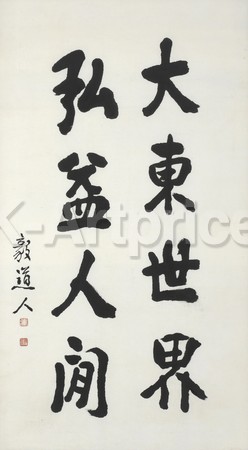 大東世界
弘益人間
毅道人
K-Artprice